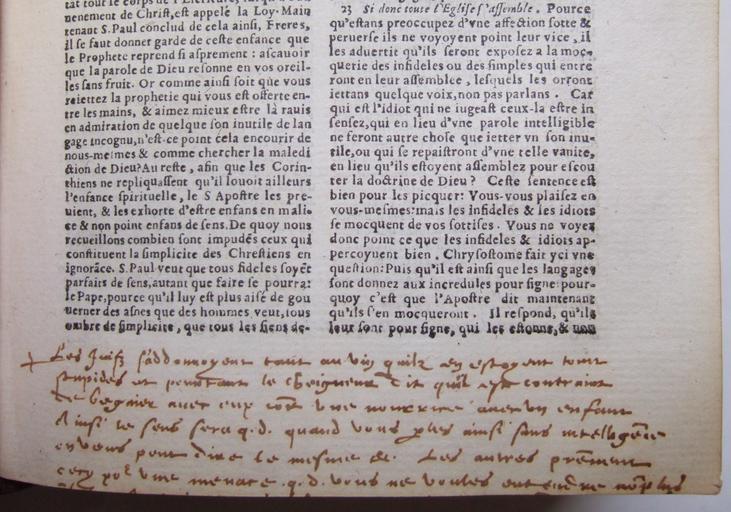 tat tout le corps de l'Escriture, iusqu'à l'ad-
uenement de Christ,est appelé la Loy. Main
tenant S.Paul conclud de cela ainsi, Freres,
il se faut donner garde de ceste enfance que
le Prophete reprend si asprement : ascauoir
que la parole de Dieu resonne en vos oreil-
les sans fruit. Or comme ainsi soit que vous
reiettez la prophetie qui vous est offerte en-
tre les mains, & aimez mieux estre là rauis
en admiration de quelque son inutile de lan
gage incognu,n'est-ce point cela encourir de
nous-mesmes & comme chercher la maledi
ction de Dieu?Au reste , afin que les Corin-
thiens ne repliquassent qu'il louoit ailleurs
l'enfance spirituelle, le S Apostre les pre-
uient, & les exhorte d'estre enfans en mali-
ce & non point enfans de sens.De quoy nous
recueillons combien sont impudés ceux qui
constituent la simplicité des Chrestiens en
ignorãce. S.Paul veut que tous fideles soyẽt
parfaits de sens,autant que faire se pourra:
le Pape,pource qu'il luy est plus aisé de gou
uerner des asnes que des hommes veut,sous
ombre de simplicité, que tous les siens de-
23 Si donc toute l'Eglise s'assemble. Pource
qu'estans preoccupez d'vne affection sotte &
peruerse ils ne voyoyent point leur vice , il
les aduertit qu'ils seront exposez a la moc-
querie des infideles ou des simples qui entre
ront en leur assemblee , lesquels les orront
iettans quelque voix,non pas parlans . Car
qui est l'idiot qui ne iugeast ceux-la estre in
sensez,qui en lieu d'vne parole intelligible
ne feront autre chose que ietter vn son inu-
tile,ou qui se repaistront d'vne telle vanite,
en lieu qu'ils estoyent assemblez pour escou
ter la doctrine de Dieu ? Ceste sentence est
bien pour les picquer: Vous-vous plaisez en
vous-mesmes:mais les infideles & les idiots
se mocquent de vos sottises . Vous ne voyez
donc point ce que les infideles & idiots ap-
perçoyuent bien . Chrysostome fait yci vne
question:Puis qu'il est ainsi que les langages
sont donnez aux incredules pour signe:pour-
quoy c'est que l'Apostre dit maintenant
qu'ils s'en mocqueront . Il respond, qu'ils
leur sont pour signe, qui les estonne,& non
+ Les Juifz s'addonnoyent tant au vin quilz en estoyent tout
stupides et pourtant le Seigneur dit quil est contraint
de begaier auec eux cõe vne nourrice auec vn enfant
Ainsi le sens sera q.d. quand vous ... ainsi sans intelligẽce
on vous peut dire le mesme &c. Les autres prẽnent
cecy poʳ vne menace .q.d. vous ne voules entendre nõ plus